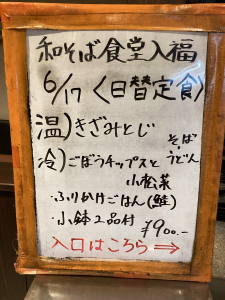 和そば食堂入福
6/17〈日替定食〉
温)きざみとじ
そば
うどん
冷)ごぼうチップスと
小松菜
・ふりかけごはん(鮭)
・小鉢2品付
¥900.-
入口はこちら⇒